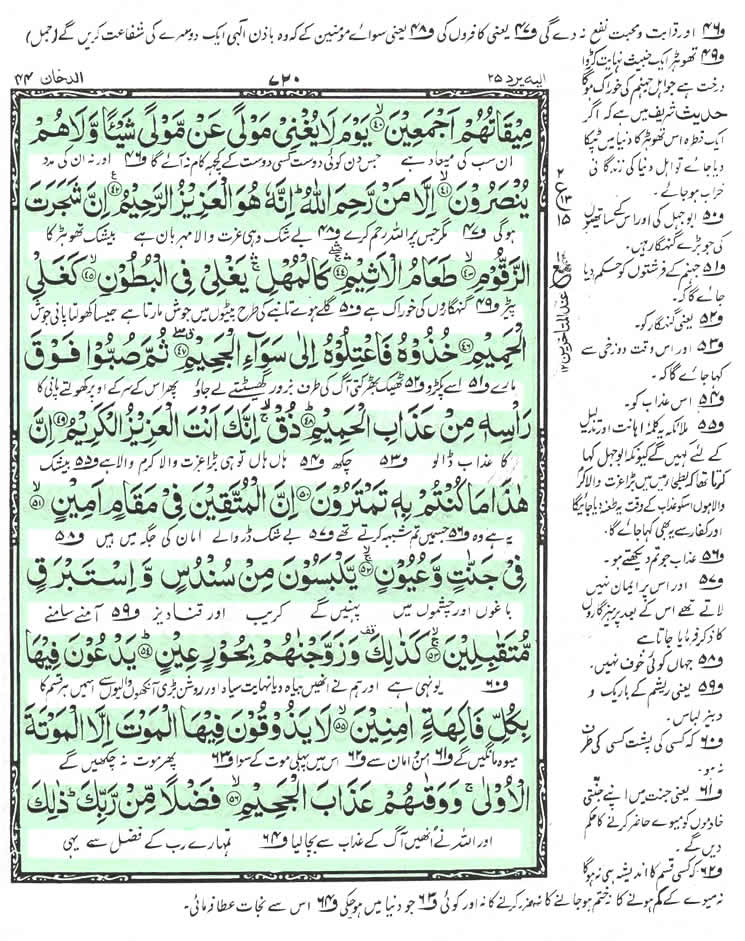 و۴۶ اور قرابت و محبت نفع نہ دے گی و۴۷ یعنی کافروں کی و۴۸ یعنی سوائے مومنین کے کہ وہ باذنِ الٰہی ایک دوسرے کی شفاعت کریں گے (جمل)
الیہ یرد ۲۵
۷۲۰
الدخان ۴۴
مِيْقَاتُهُمْ اَجْمَعِيْنَ ۙ۴۰ يَوْمَ لَا يُغْنِيْ مَوْلًى عَنْ مَّوْلًى شَيْـًٔا وَّلَا هُمْ
ان سب کی میعاد ہے جس دن کوئی دوست کسی دوست کے کچھ کام نہ آئے گا و۴۶ اور نہ ان کی مدد
يُنْصَرُوْنَ ۙ۴۱ اِلَّا مَنْ رَّحِمَ اللّٰهُ ؕ اِنَّهٗ هُوَ الْعَزِيْزُ الرَّحِيْمُ ۠۴۲ اِنَّ شَجَرَتَ
ہوگی و۴۷ مگر جس پر اللہ رحم کرے و۴۸ بے شک وہی عزت والا مہربان ہے بیشک تھوہڑ کا
الزَّقُّوْمِ ۙ۴۳ طَعَامُ الْاَثِيْمِ ۖۛۚ۴۴ كَالْمُهْلِ ۛۚ يَغْلِيْ فِي الْبُطُوْنِ ۙ۴۵ كَغَلْيِ
پیڑ و۴۹ گنہگاروں کی خوراک ہے و۵۰ گلے ہوئے تانبے کی طرح پیٹوں میں جوش مارتا ہے جیسا کھولتا پانی جوش
الْحَمِيْمِ ۴۶ خُذُوْهُ فَاعْتِلُوْهُ اِلٰى سَوَآءِ الْجَحِيْمِ ۖۗ۴۷ ثُمَّ صُبُّوْا فَوْقَ
مارے و۵۱ اسے پکڑو و۵۲ ٹھیک بھڑکتی آگ کی طرف بزور گھسیٹتے لے جاؤ پھر اس کے سر کے اوپر کھولتے پانی کا
رَاْسِهٖ مِنْ عَذَابِ الْحَمِيْمِ ؕ۴۸ ذُقْ ۙۚ اِنَّكَ اَنْتَ الْعَزِيْزُ الْكَرِيْمُ ۴۹ اِنَّ
کا عذاب ڈالو و۵۳ چکھ و۵۴ ہاں ہاں تو ہی بڑا عزت والا کرم والا ہے و۵۵ بیشک
هٰذَا مَا كُنْتُمْ بِهٖ تَمْتَرُوْنَ ۵۰ اِنَّ الْمُتَّقِيْنَ فِيْ مَقَامٍ اَمِيْنٍ ۙ۵۱
یہ ہے وہ و۵۶ جس میں تم شبہہ کرتے تھے و۵۷ بے شک ڈر والے امان کی جگہ میں ہیں و۵۸
فِيْ جَنّٰتٍ وَّعُيُوْنٍ ۙۚ۵۲ يَّلْبَسُوْنَ مِنْ سُنْدُسٍ وَّاِسْتَبْرَقٍ
باغوں اور چشموں میں پہنیں گے کریب اور قنادیز و۵۹ آمنے سامنے
مُّتَقٰبِلِيْنَ ۙۚ۵۳ كَذٰلِكَ ۟ وَزَوَّجْنٰهُمْ بِحُوْرٍ عِيْنٍ ؕ۵۴ يَدْعُوْنَ فِيْهَا
و۶۰ یونہی ہے اور ہم نے انھیں بیاہ دیا نہایت سیاہ اور روشن بڑی آنکھوں والیوں سے اس میں ہر قسم کا
بِكُلِّ فَاكِهَةٍ اٰمِنِيْنَ ۙ۵۵ لَا يَذُوْقُوْنَ فِيْهَا الْمَوْتَ اِلَّا الْمَوْتَةَ
میوہ مانگیں گے و۶۱ امن و امان سے و۶۲ اس میں پہلی موت کے سوا و۶۳ پھر موت نہ چکھیں گے
الْاُوْلٰى ۚ وَوَقٰىهُمْ عَذَابَ الْجَحِيْمِ ۙ۵۶ فَضْلًا مِّنْ رَّبِّكَ ؕ ذٰلِكَ
اور اللہ نے انھیں آگ کے عذاب سے بچا لیا و۶۴ تمہارے رب کے فضل سے یہی
و۴۹ تھوہڑ ایک خبیث نہایت کڑوا
درخت ہے جو اہلِ جہنم کی خوراک ہوگا
حدیث شریف میں ہے کہ اگر
ایک قطرہ اس تھوہڑ کا دنیا میں ٹپکا
دیا جائے تو اہلِ دنیا کی زندگانی
خراب ہو جائے۔
و۵۰ ابوجہل کی اور اس کے ساتھیوں
کی جو بڑے گنہگار ہیں۔
و۵۱ جہنم کے فرشتوں کو حکم دیا
جائے گا کہ۔
و۵۲ یعنی گنہگار کو۔
و۵۳ اور اس وقت دوزخی سے
کہا جائے گا کہ۔
و۵۴ اس عذاب کو۔
و۵۵ ملائکہ یہ کلمہ اہانت اور تذلیل
کے لئے کہیں گے کیونکہ ابوجہل کہا
کرتا تھا کہ بطحا میں میں بڑا عزت والا کرم
والا ہوں اس کو عذاب کے وقت یہ طعنہ دیا جائیگا
اور کفار سے یہ بھی کہا جائے گا۔
و۵۶ عذاب جو تم دیکھتے ہو۔
و۵۷ اور اس پر ایمان نہیں
لاتے تھے اس کے بعد پرہیزگاروں
کا ذکر فرمایا جاتا ہے
و۵۸ جہاں کوئی خوف نہیں۔
و۵۹ یعنی ریشم کے باریک و
دبیز لباس۔
و۶۰ کہ کسی کی پشت کسی کی طرف
نہ ہو۔
و۶۱ یعنی جنت میں اپنے جنتی
خادموں کو میوے حاضر کرنے کا حکم
دیں گے۔
و۶۲ کہ کسی قسم کا اندیشہ ہی نہ ہوگا
نہ میوے کے کم ہونے کا نہ ختم ہو جانے کا نہ ضرر کرنے کا نہ اور کوئی و۶۳ جو دنیا میں ہو چکی و۶۴ اس سے نجات عطا فرمائی۔
۲
ع ۱۳
۱۵
عند المتاخرین ۱۲